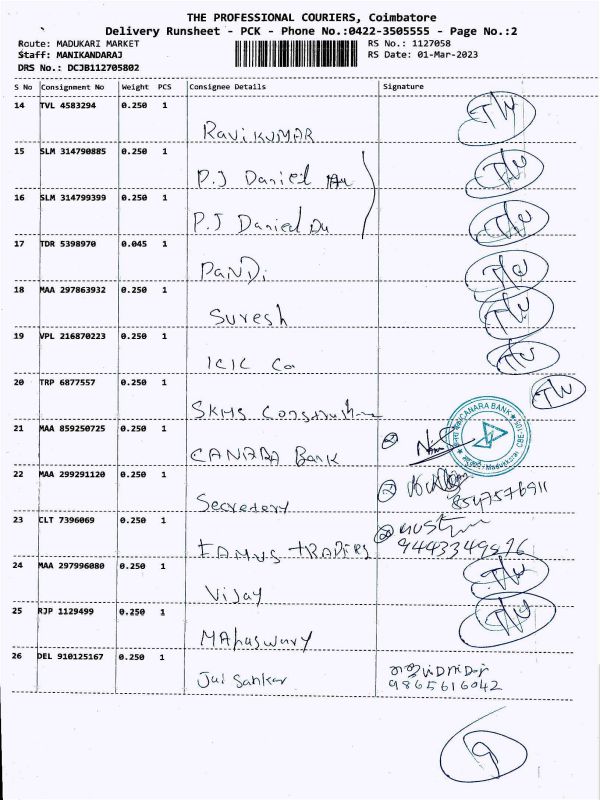 THE PROFESSIONAL COURIERS, Coimbatore
Delivery Runsheet - PCK - Phone No.:0422-3505555 - Page No.:2
Route: MADUKARI MARKET
RS No.: 1127058
Staff: MANIKANDARAJ
RS Date: 01-Mar-2023
DRS No.: DCJB112705802
S No Consignment No Weight PCS Consignee Details Signature
14 TVL 4583294 0.250 1
RaviKUMAR
15 SLM 314790885 0.250 1
P.J Daniel
16 SLM 314799399 0.250 1
P.J Daniel
17 TDR 5398970 0.045 1
PaNDi
18 MAA 297863932 0.250 1
Suresh
19 VPL 216870223 0.250 1
ICIC Co
20 TRP 6877557 0.250 1
SKMS Construction
21 MAA 859250725 0.250 1
CANARA Bank
CANARA BANK
22 MAA 299291120 0.250 1
Secretery
8547576911
23 CLT 7396069 0.250 1
FAMUS TRADERS
9443349576
24 MAA 297996080 0.250 1
Vijay
25 RJP 1129499 0.250 1
MAhaswary
26 DEL 910125167 0.250 1
Jai Sankar
9865616042
9